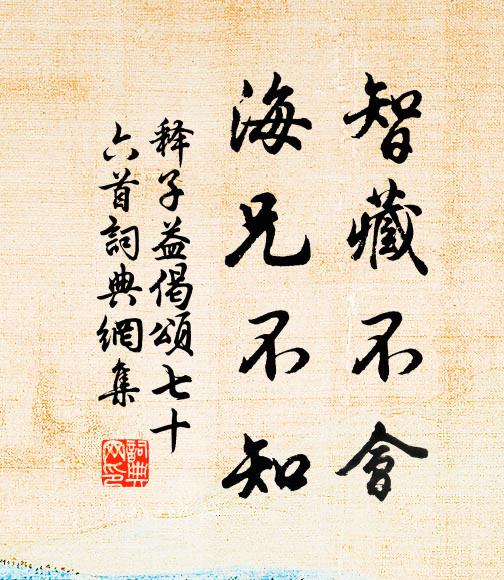 智藏不會
海兄不知
释子益偈頌七十
六首詞典網集
詞典
网印